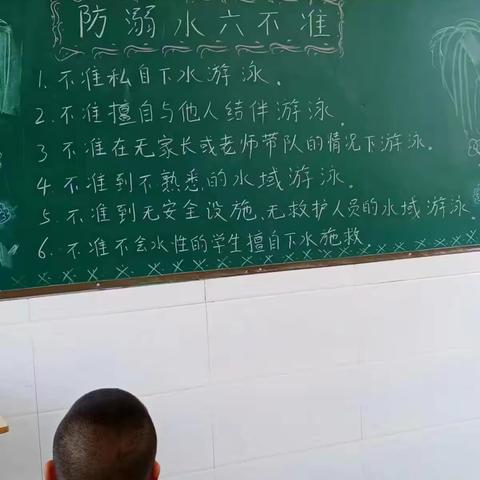 防溺水六不准
1. 不准私自下水游泳。
2. 不准擅自与他人结伴游泳。
3 不准在无家长或老师带队的情况下游泳。
4. 不准到不熟悉的水域游泳。
5. 不准到无安全设施、无救护人员的水域游泳。
6. 不准不会水性的学生擅自下水施救。